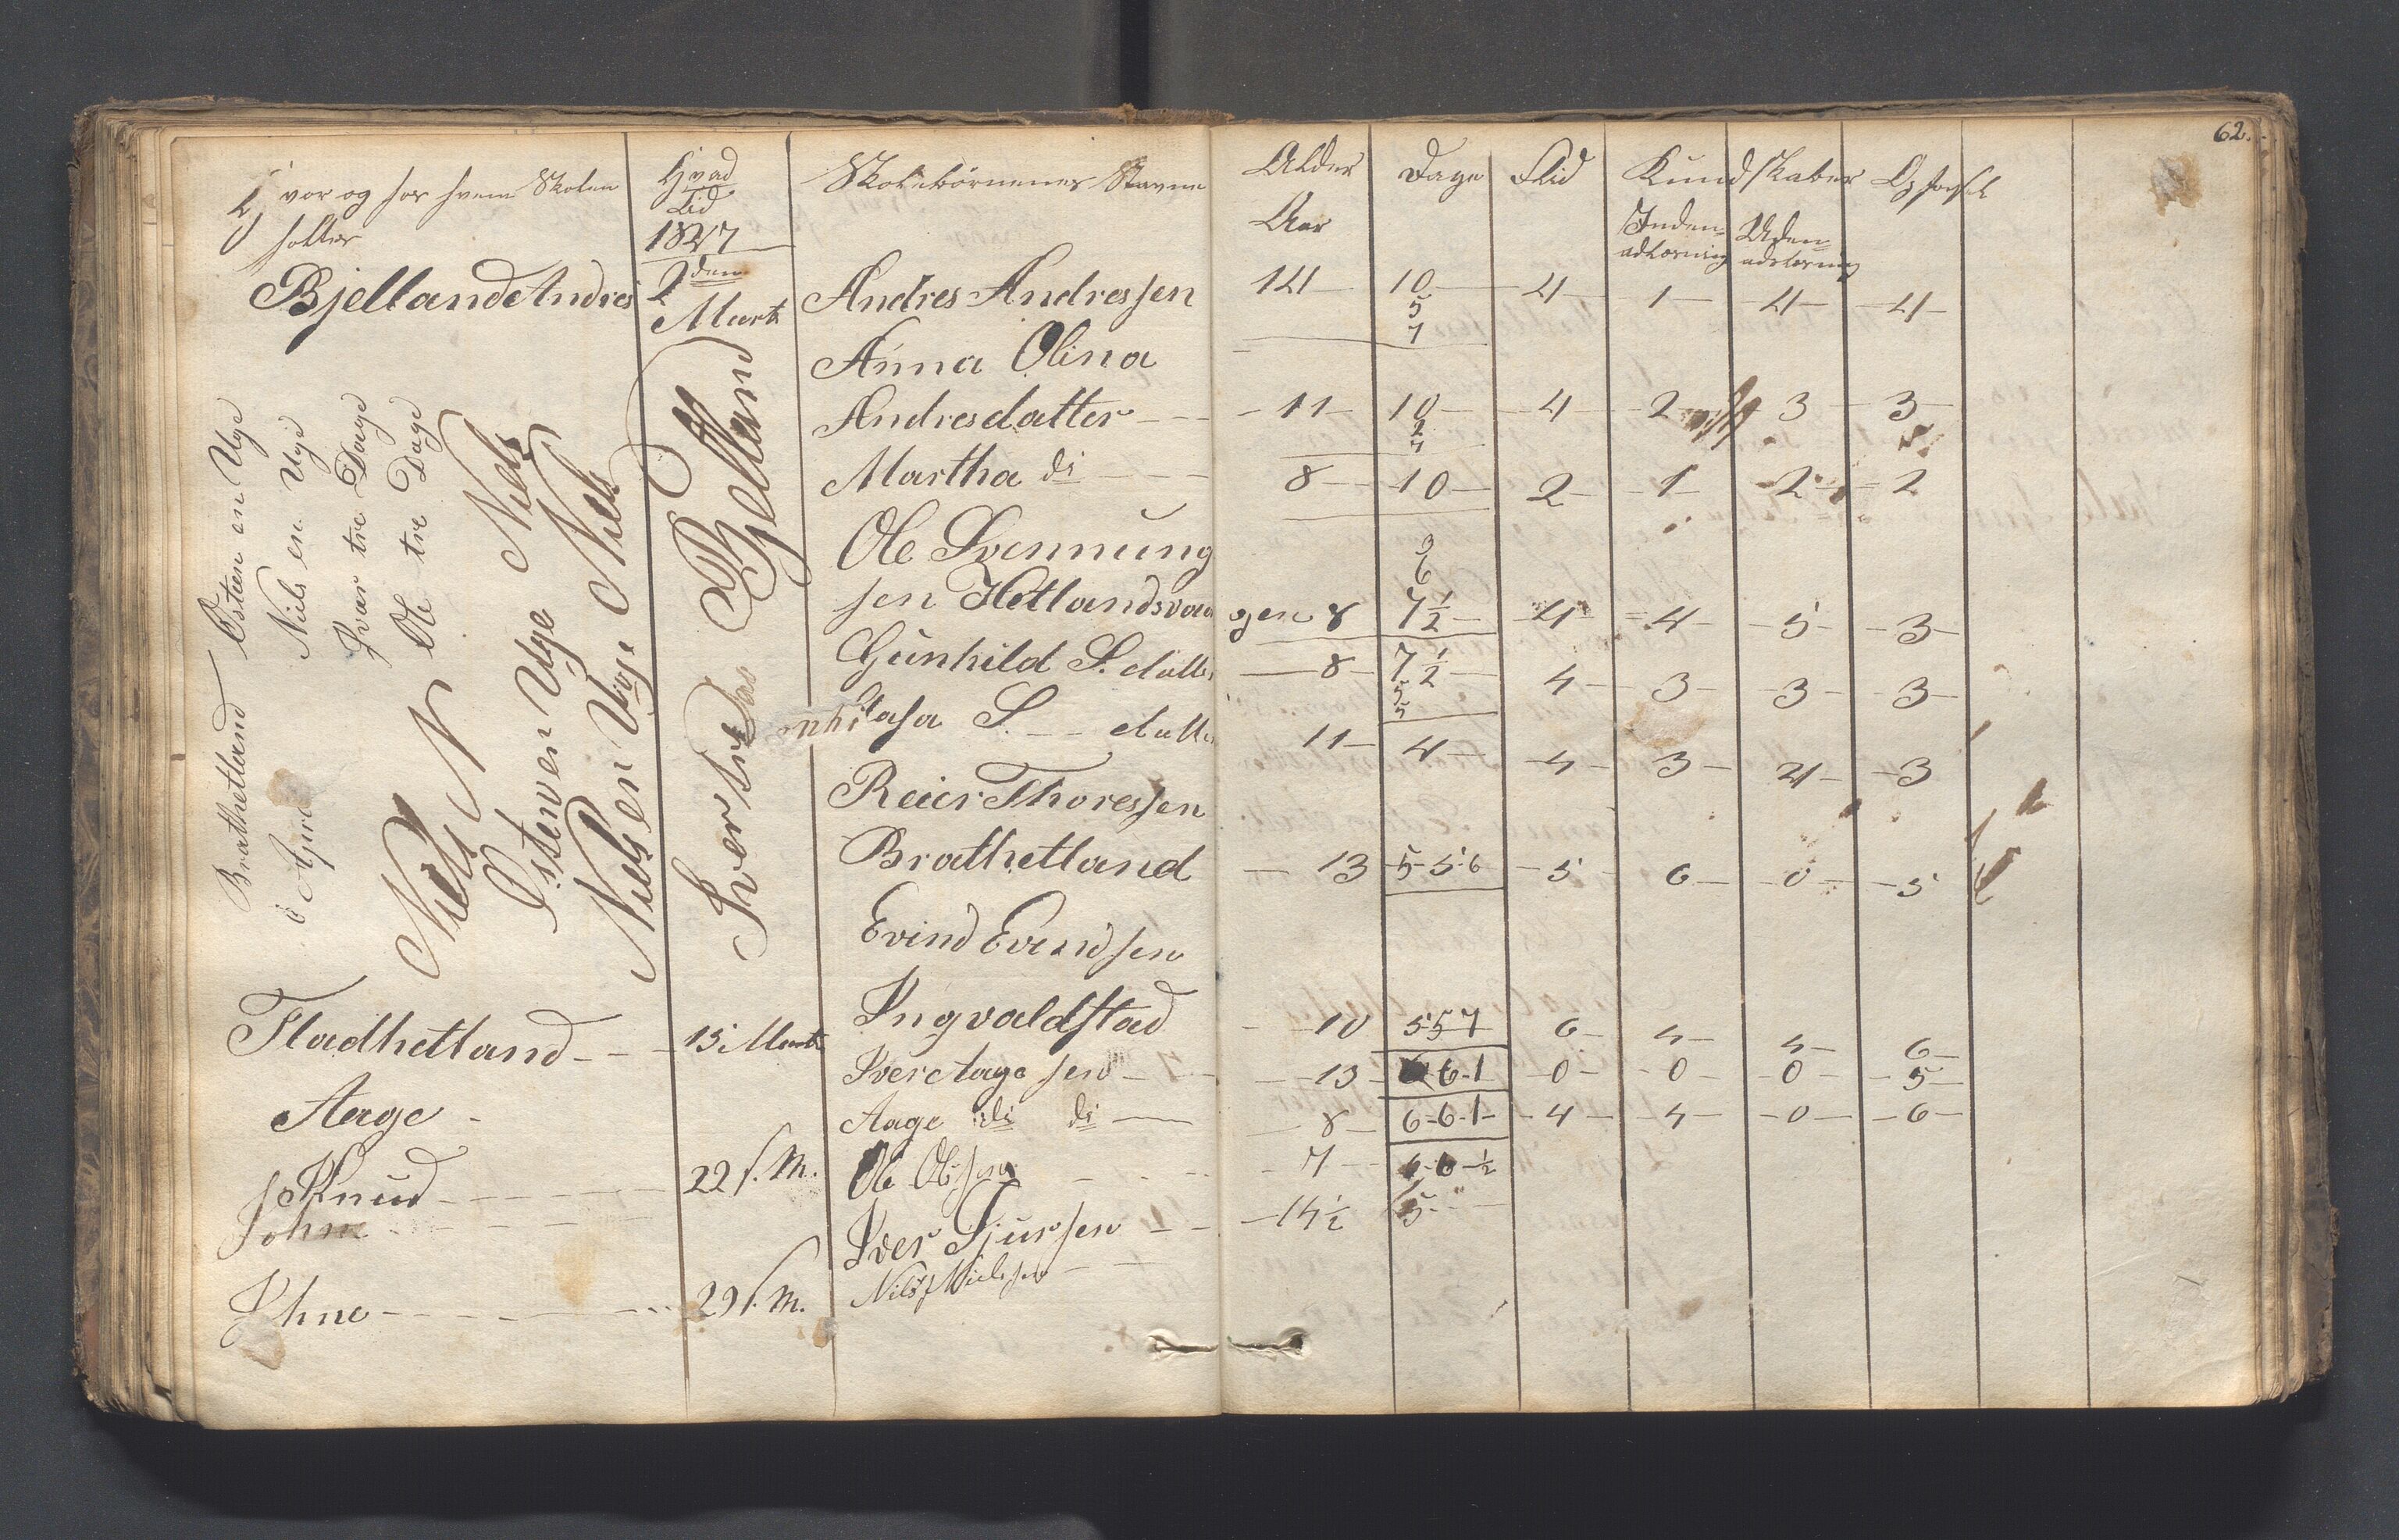 62.
Hvor og hos hvem Skolen
holtes
Hvad
Tid
1847
Skolebørnenes Navne
Alder
Aar
Dage
Flid
Kundskaber
Inden-
adlæsning
Uden-
adslæsning
Opførsel
Bjelland Andres
2den
Marts
Andres Andressen 14 10 4 1 4 4
5
7
Anna Olina
Andresdatter 11 10 4 2 3 3
2
7
Martha di 8 10 2 1 2 2
Ole Svennung
9
6
sen Hetlandsvaagen 8 7½ 4 4 5 3
Gunhild S. datter 8 7½ 4 3 3 3
5
5
Aasa S. datter 11 4 4 3 4 3
Reier Thoressen
Brathetland 13 5-5-6 5 6 0 5
Evind Evindsen
Ingvaldstad 10 5-5-7 6 4 4 6
Fladhetland 15 Marts
Iver Aagesen 13 6-6-1 0 0 0 5
Aage
Aage di di 8 6-6-1 4 4 0 6
Knud 22 s. M.
Ole Olsen 7 6-6-½
John
Iver Sjursen 14½ 5
Ihne 29 s. M.
Nils Nielsen
Brathetland
6 April
Østen en Uge
Niels en Uge
Ivar tre Dage
Ole tre Dage
Niels N Niels
Østen en Uge Niels
Niels en Uge
Iver Bjelland